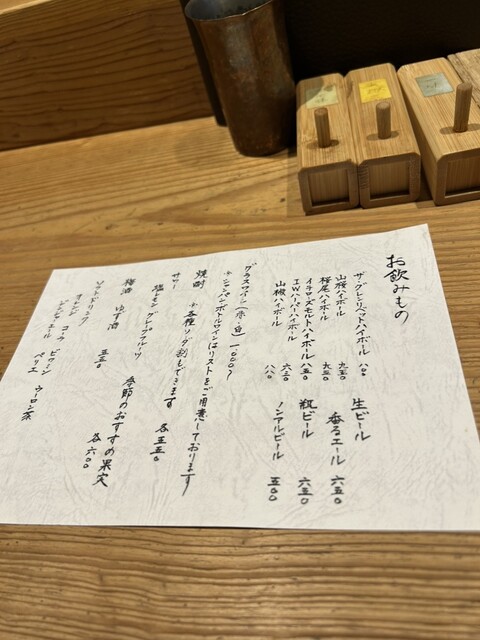 お飲みもの
生ビール
香るエール 六五〇
瓶ビール 六三〇
ノンアルビール 五〇〇
ザ・グレンリベットハイボール
山桜ハイボール 九五〇
桜尾ハイボール 九三〇
イチローズモルトハイボール 八五〇
I.W.ハーパーハイボール 六三〇
山椒ハイボール
グラスワイン(赤・白) 一、〇〇〇〜
シャンパン・ボトルワインはリストをご用意しております
焼酎
各種ソーダ割もできます
サワー
塩レモン グレープフルーツ 各五五〇
季節のおすすめ果実 各六〇〇
梅酒 ゆず酒 五五〇
ソフトドリンク
オレンジ コーラ ピーリーン ウーロン茶
ジンジャエール ペリエ